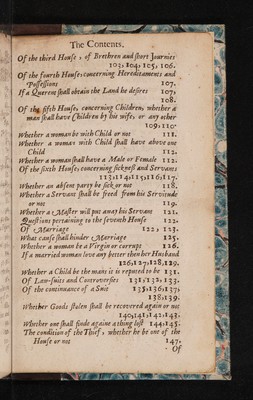 The Contents.
Of the third House, of Brethren and short Journies
103, 104, 105, 106.
Of the fourth House, concerning Hereditaments and
Possessions 107.
If a Querent shall obtain the Land he desires 107,
108.
Of the fifth House, concerning Children, whether a
man shall have Children by his wife, or any other
109, 110.
Whether a woman be with Child or not 111.
Whether a woman with Child shall have above one
Child 112.
Whether a woman shall have a Male or Female 112.
Of the sixth House, concerning sickness and Servants
113, 114, 115, 116, 117.
Whether an absent party be sick or not 118.
Whether a Servant shall be freed from his Servitude
or not 119.
Whether a Master will put away his Servant 121.
Questions pertaining to the seventh House 122.
Of Marriage 122, 123.
What cause shall hinder Marriage 125.
Whether a woman be a Virgin or corrupt 126.
If a married woman love any better then her Husband
126, 127, 128, 129.
Whether a Child be the mans it is reputed to be 131.
Of Law-suits and Controversies 131, 132, 133.
Of the continuance of a Suit 135, 136, 137,
138, 139.
Whether Goods stolen shall be recovered again or not
140, 141, 142, 143.
Whether one shall finde againe a thing lost 144, 145.
The condition of the Thief, whether he be one of the
House or not 147.
Of